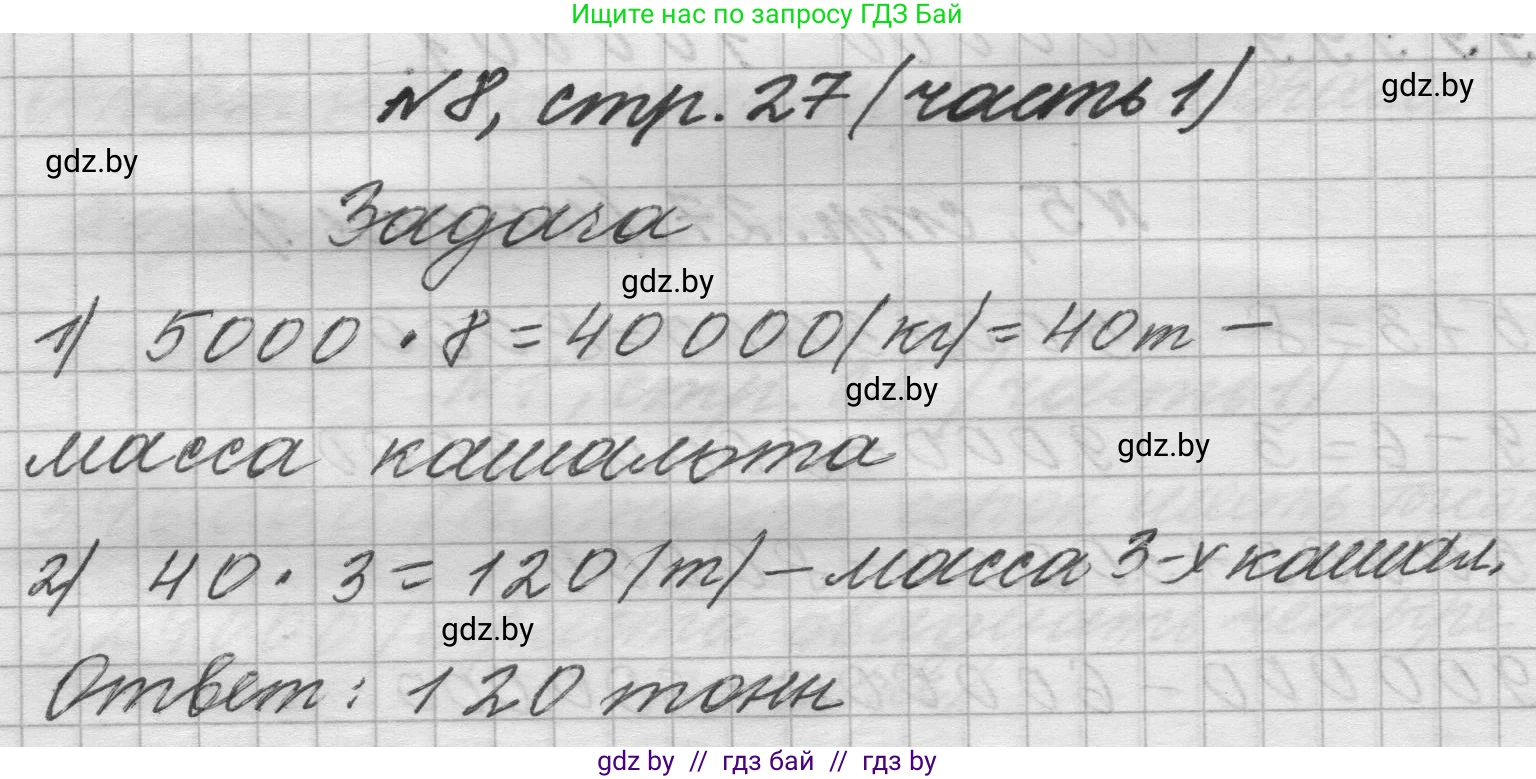 Ищите нас по запросу ГДЗ Бай
№8, стр. 27 (часть 1)
gdz.by
gdz.by
Задача
gdz.by
1) 5000 · 8 = 40 000 (кг) = 40т —
gdz.by
масса кашалота
gdz.by
2) 40 · 3 = 120 (т) — масса 3-х кашал.
gdz.by
Ответ: 120 тонн
gdz by // гдз бай // гдз by